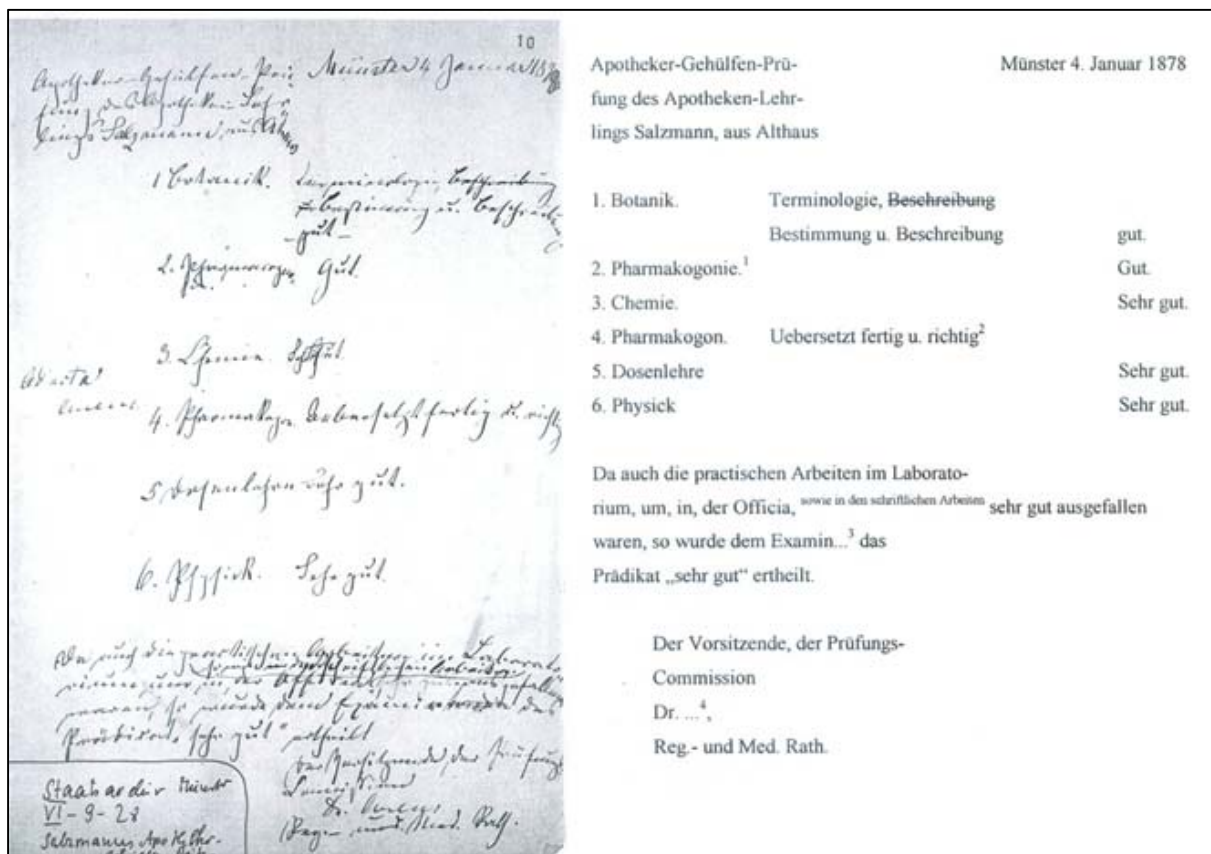 10
Apotheker-Gehülfen-Prü- Münster 4 Januar 1878
fung des Apotheken-Lehr-
lings Salzmann, aus
1 Botanik. Terminologie, Beschreibung
Bestimmung u. Beschreibung
- gut -
2. Gut.
3. Chemie. Sehr gut.
Ad acta
4. Uebersetzt fertig u. richtig
5 Dosenlehre Sehr gut.
6. Physick. Sehr gut
Da auch die practischen Arbeiten im Laborato
sowie in den schriftlichen Arbeiten
rium, um, in, der sehr gut ausgefallen
waren, so wurde dem das
Prädikat „sehr gut" ertheilt
Der Vorsitzende, der Prüfungs
Commission
Dr.
Reg. und Med. Rath.
Staatsarchiv Münster
VI - 9 - 28
Salzmanns Apotheker-
Apotheker-Gehülfen-Prü- Münster 4. Januar 1878
fung des Apotheken-Lehr-
lings Salzmann, aus Althaus
1. Botanik. Terminologie, Beschreibung
Bestimmung u. Beschreibung gut.
2. Pharmakogonie.1 Gut.
3. Chemie. Sehr gut.
4. Pharmakogon. Uebersetzt fertig u. richtig2
5. Dosenlehre Sehr gut.
6. Physick Sehr gut.
Da auch die practischen Arbeiten im Laborato-
rium, um, in, der Officia, sowie in den schriftlichen Arbeiten sehr gut ausgefallen
waren, so wurde dem Examin...3 das
Prädikat „sehr gut" ertheilt.
Der Vorsitzende, der Prüfungs-
Commission
Dr. ...4,
Reg.- und Med. Rath.